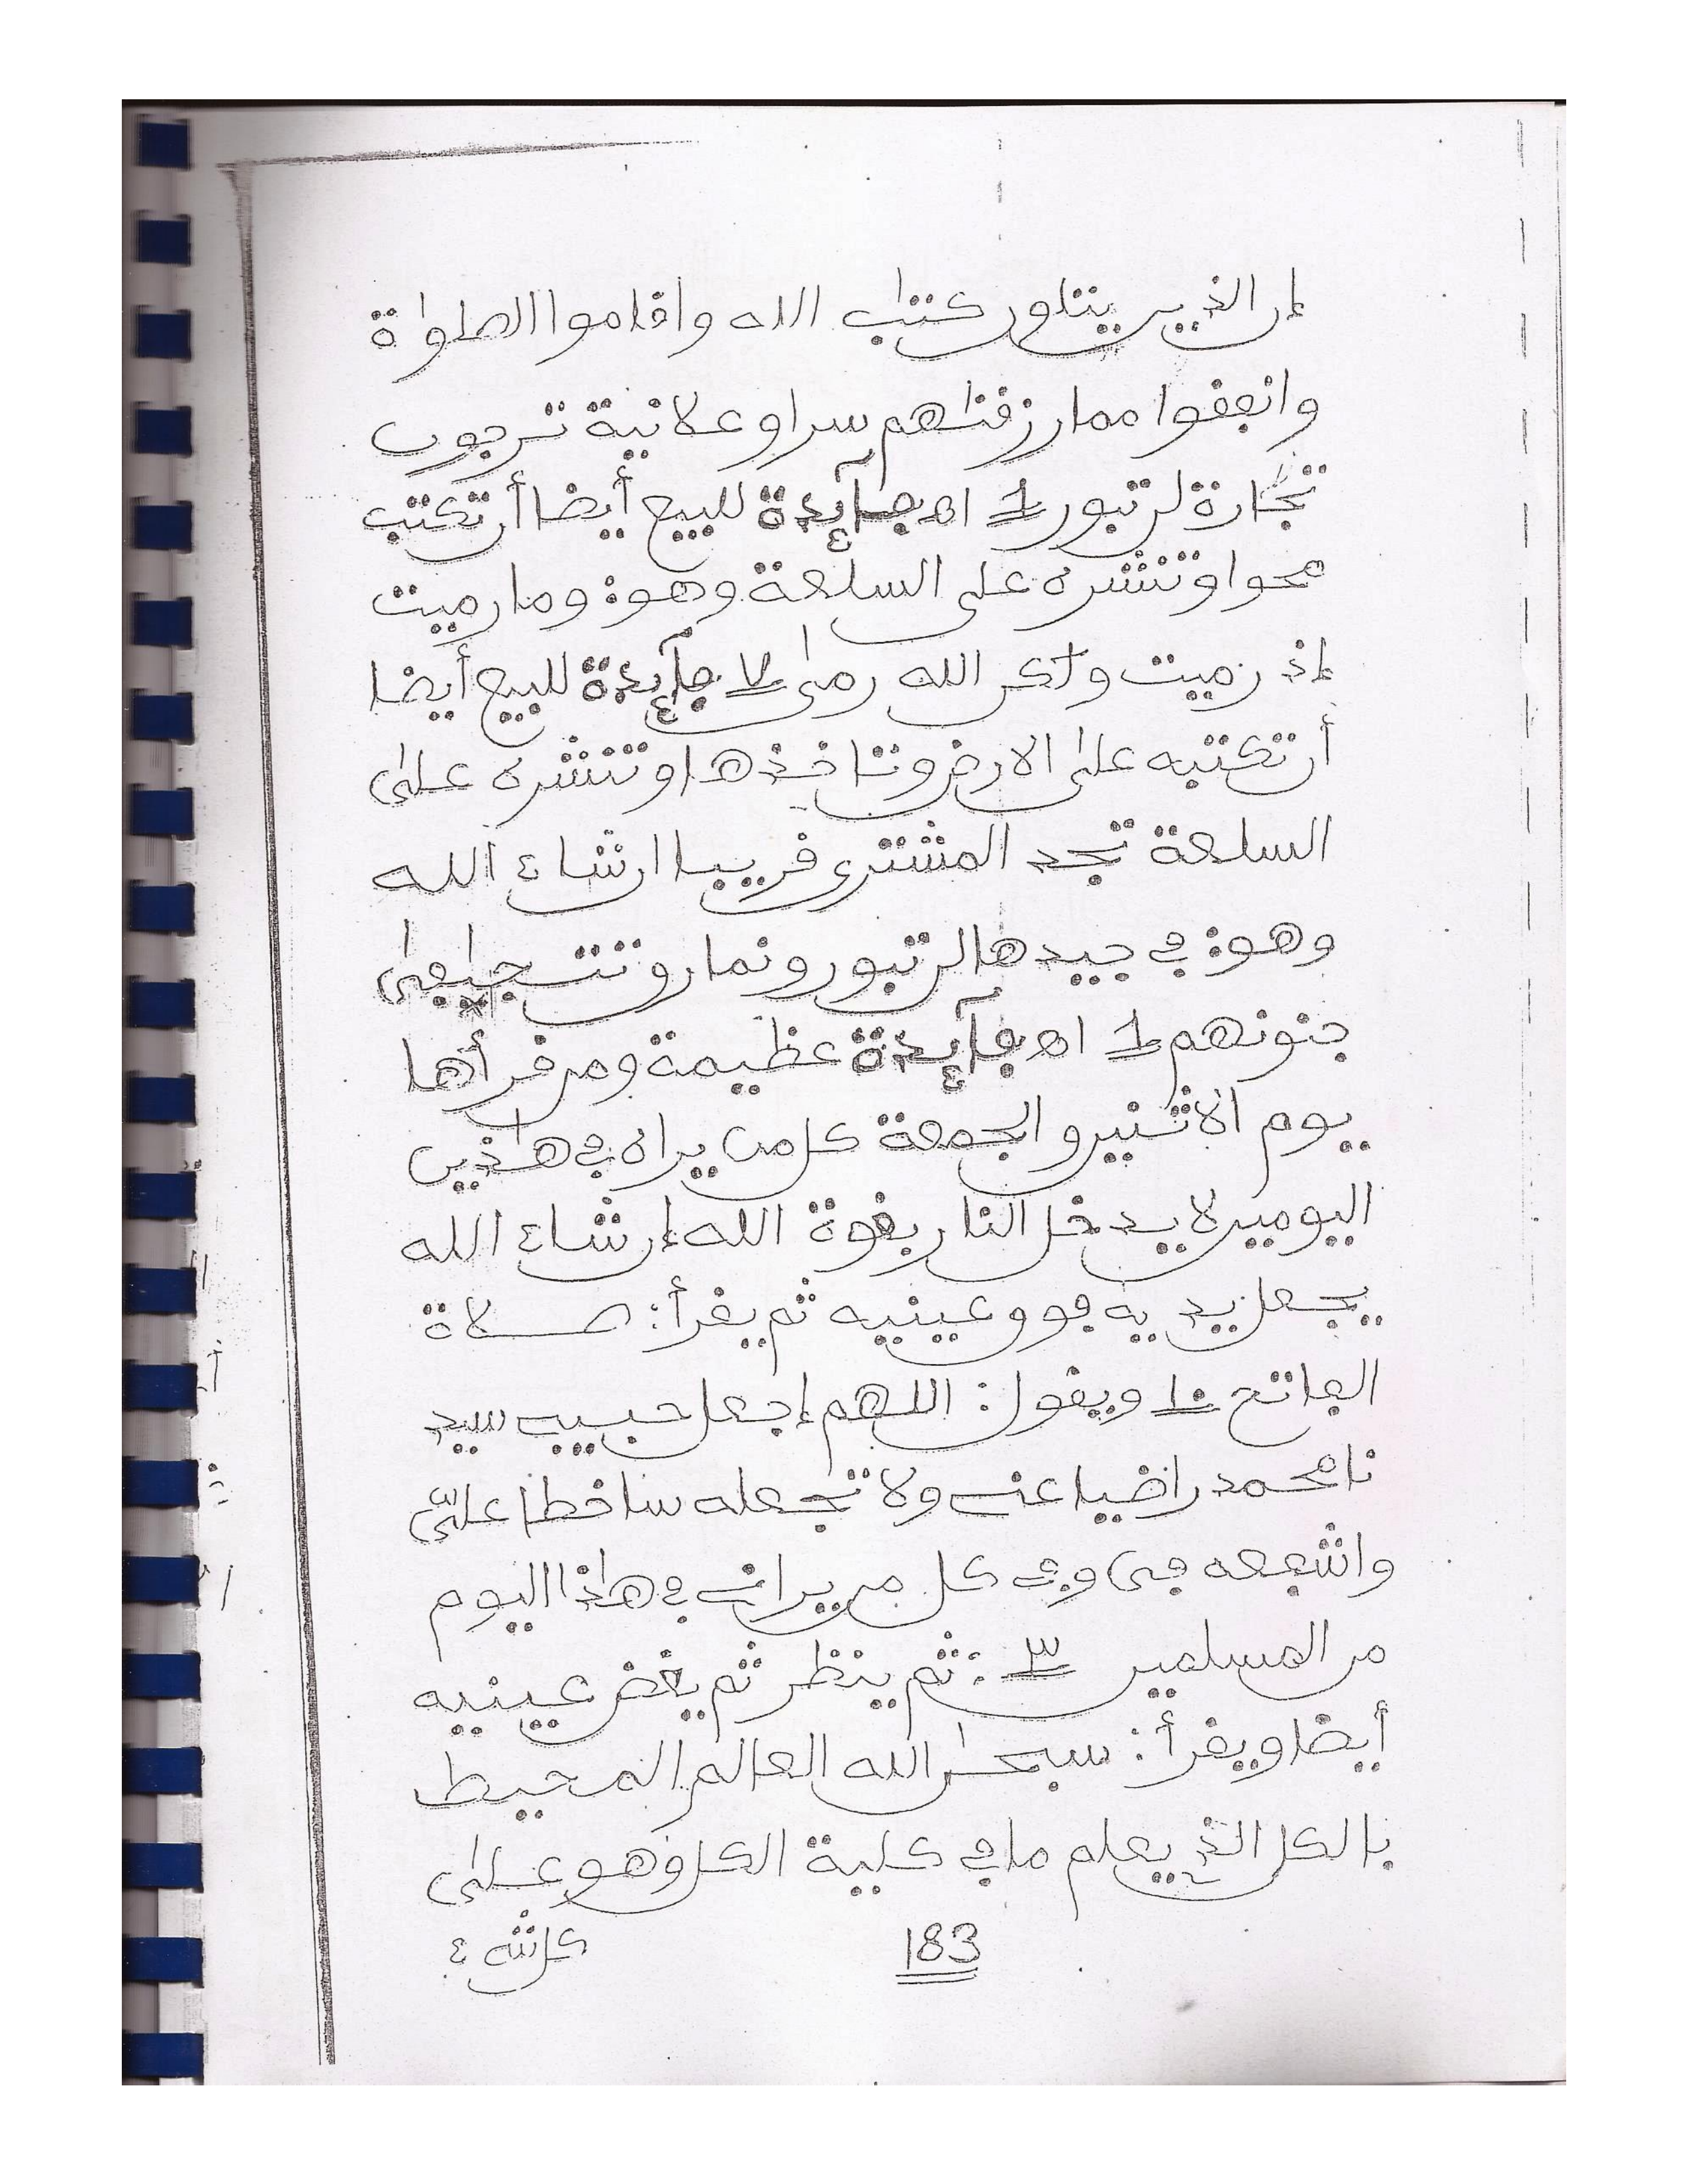 إن الذين يتلون كتٰب الله واقاموا الصلوٰة
وانفقوا مما رزقنٰهم سرا وعلانية ترجون
تجٰارة لن تبور 1 اه فآئدة للبيع أيضا أن تكتب
محوا وتنشره على السلعة وهو: وما رميت
إذ رميت ولٰكن الله رمىٰ ٧ فآئدة للبيع أيضا
أن تكتبه علىٰ الارض وتاخذها وتنشره علىٰ
السلعة تجد المشترى قريبا ان شاء الله
وهو: في جيدها لن تبور ونمارو تت
جنونهم 1 اه فآئدة عظيمة ومن قرأها
يوم الاثنين والجمعة كل من يراه في هٰذين
اليومين لا يدخل النار بقوة الله إن شاء الله
يجعل يديه فوق عينيه ثم يقرأ: صلاة
الفاتح ١٠ ويقول: اللهم إجعل حبيبى سيد
نا محمد راضيا عنى ولا تجعله ساخطا علىّ
واشفعه في وفى كل من يرانى في هٰذا اليوم
من المسلمين ٣: ثم ينظر ثم يغض عينيه
أيضا ويقرأ: سبحٰن الله العالم المحيط
بالكل الذي يعلم ما في كلية الكل وهو علىٰ
183
كل شىء